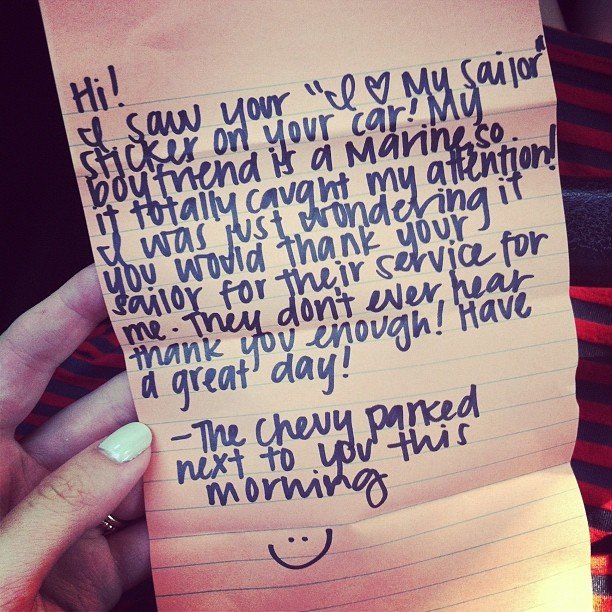 Hi!
I saw your "I ♡ My sailor"
sticker on your car! My
boyfriend is a Marine, so
it totally caught my attention!
I was just wondering if
you would thank your
sailor for their service for
me. They don't ever hear
thank you enough! Have
a great day!
-The Chevy parked
next to you this
morning